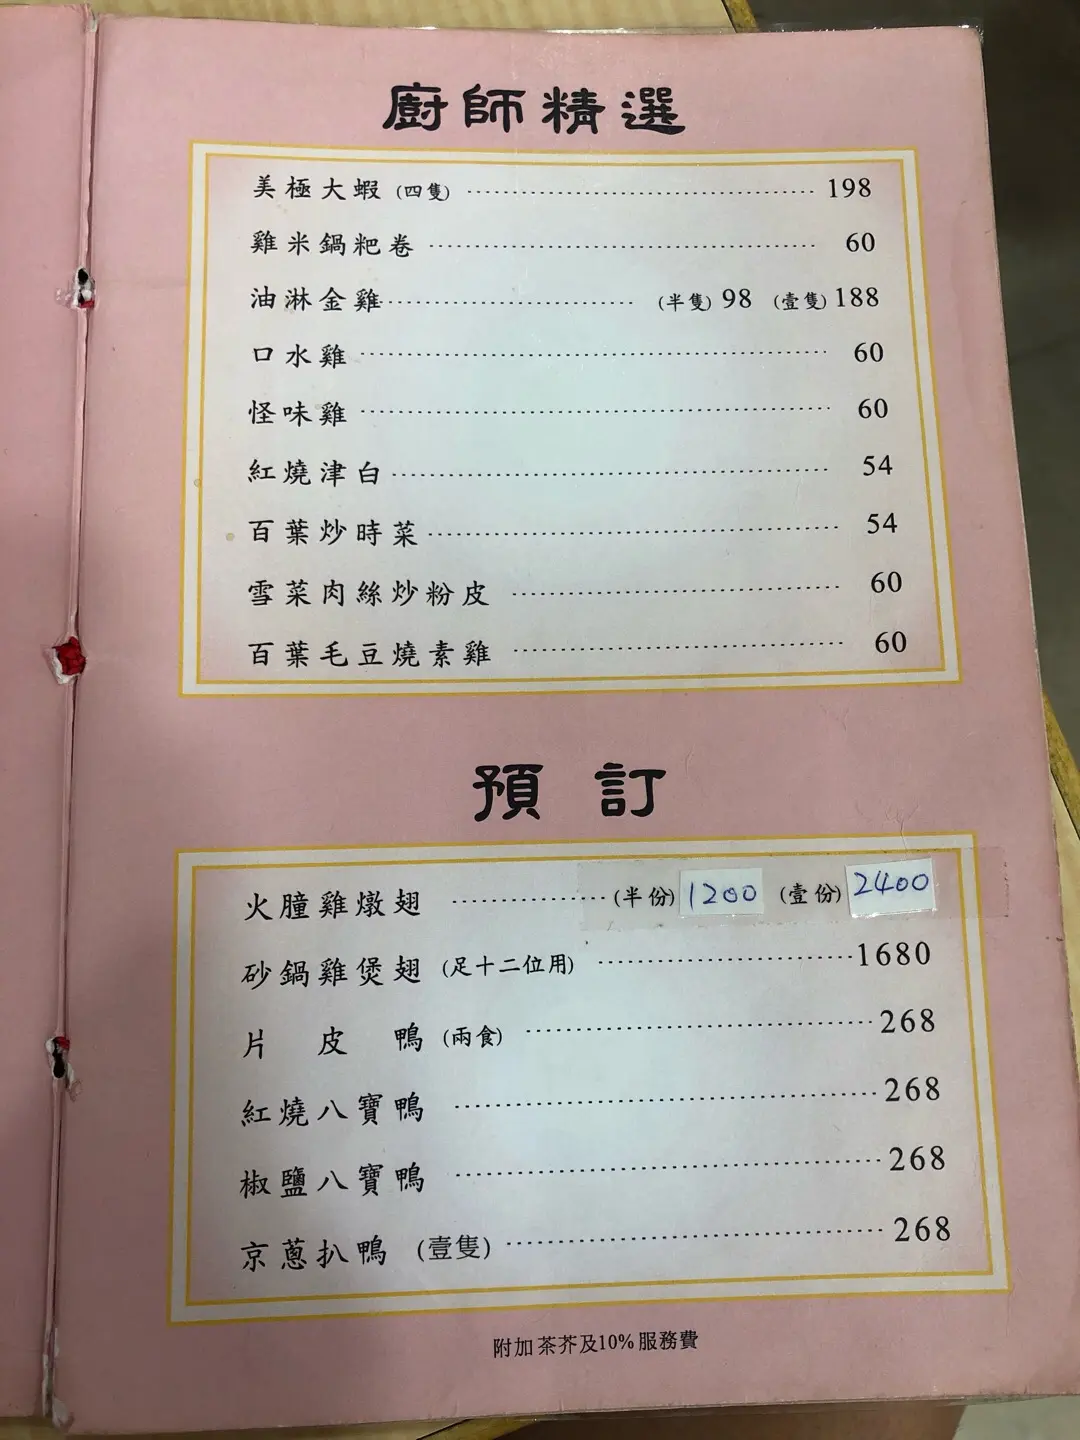 廚師精選
美極大蝦 (四隻) 198
雞米鍋粑卷 60
油淋金雞 (半隻) 98 (壹隻) 188
口水雞 60
怪味雞 60
紅燒津白 54
百葉炒時菜 54
雪菜肉絲炒粉皮 60
百葉毛豆燒素雞 60
預訂
火腫雞燉翅 (半份) 1200 (壹份) 2400
砂鍋雞煲翅 (足十二位用) 1680
片皮鴨 (兩食) 268
紅燒八寶鴨 268
椒鹽八寶鴨 268
京蔥扒鴨 (壹隻) 268
附加茶芥及10%服務費